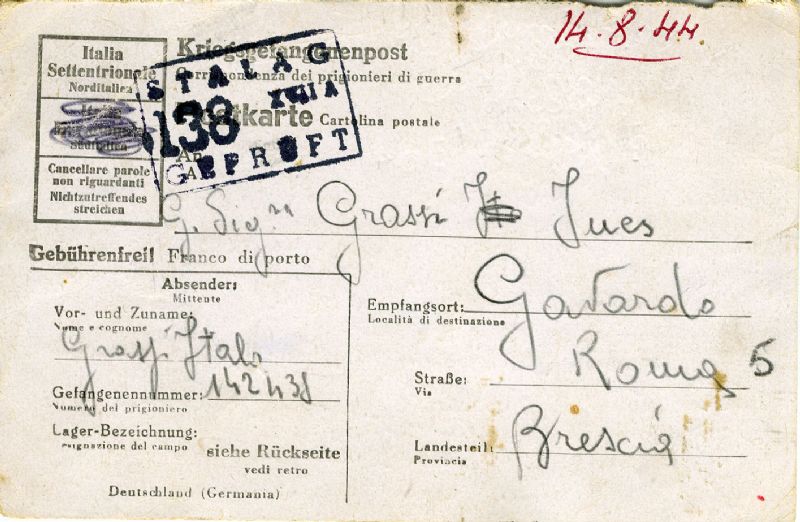 14.8.44.
Italia
Settentrionale
Norditalien
Süditalien
Cancellare parole
non riguardanti
Nichtzutreffendes
streichen
Kriegsgefangenenpost
Corrispondenza dei prigionieri di guerra
Postkarte Cartolina postale
STALAG
XVII A
138
GEPRÜFT
An
A
G. Sig.na Grassi Ines
Gebührenfrei! Franco di porto
Absender:
Mittente
Vor- und Zuname:
Nome e cognome
Grassi Italo
Gefangenennummer: 142438
Numero del prigioniero
Lager-Bezeichnung:
Designazione del campo
siehe Rückseite
vedi retro
Deutschland (Germania)
Empfangsort: Gavardo
Località di destinazione
Straße: Roma 5
Via
Landesteil: Brescia
Provincia